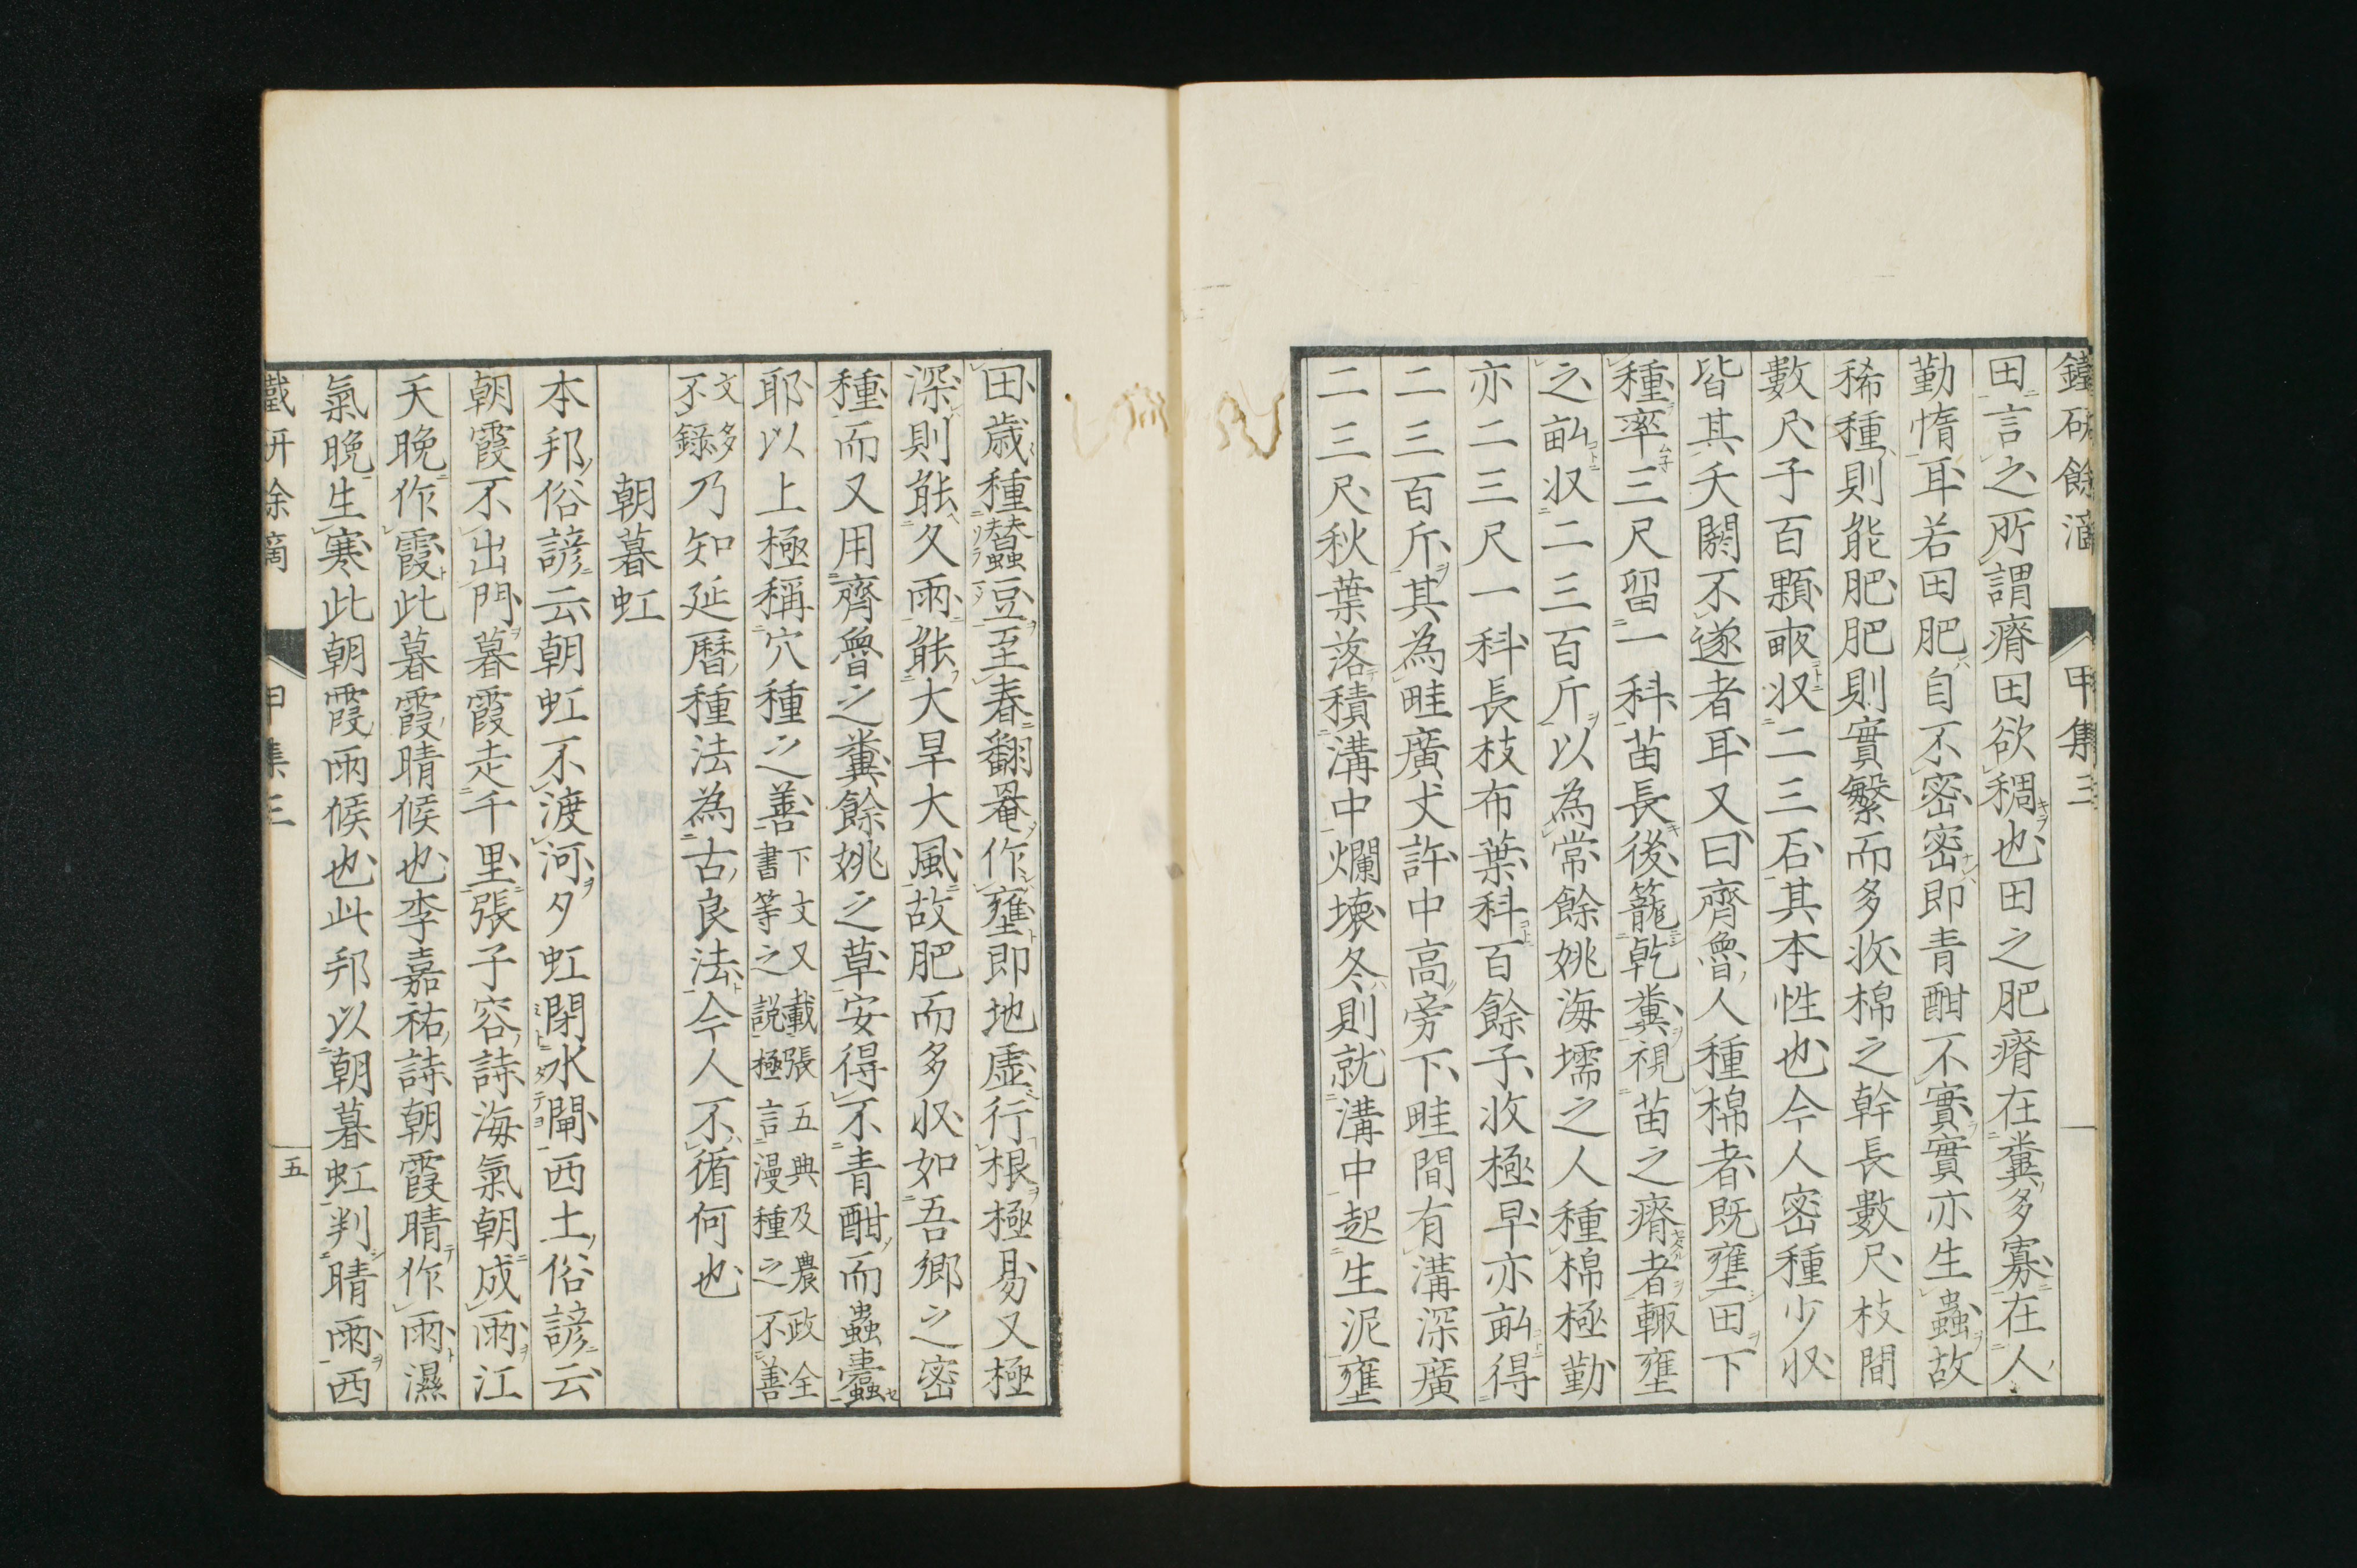 鐵研餘滴 甲集三
田言之所謂瘠田欲稠也田之肥瘠在糞多寡在人
勤惰耳若田肥自不密密即青酣不實實亦生蟲故
稀種則能肥肥則實繁而多收棉之幹長數尺枝間
數尺子百顆畝收二三石其本性也今人密種少收
皆其夭閼不遂者耳又曰齊魯人種棉者既壅田下
種率三尺留一科苗長後籠乾糞視苗之瘠者輙壅
之畝収二三百斤以為常餘姚海壖之人種棉極勤
亦二三尺一科長枝布葉科百餘子收極早亦畝得
二三百斤其為畦廣丈許中高旁下畦間有溝深廣
二三尺秋葉落積溝中爛壊冬則就溝中起生泥壅
田歳種蠶豆至春翻罨作壅即地虛行根極易又極
深則能久雨能大旱大風故肥而多収如吾鄉之密
種而又用齊魯之糞餘姚之草安得不青酣而蟲蠹
耶以上極稱穴種之善下文又載張五典及農政全
書等之説極言漫種之不善
文多
不錄乃知延曆種法為古良法今人不循何也
朝暮虹
本邦俗諺云朝虹不渡河夕虹閉水閘西土俗諺云
朝霞不出門暮霞走千里張子容詩海氣朝成雨江
天晚作霞此暮霞晴候也李嘉祐詩朝霞晴作雨濕
氣晚生寒此朝霞雨候也此邦以朝暮虹判晴雨西
鐵研餘滴 甲集三 五